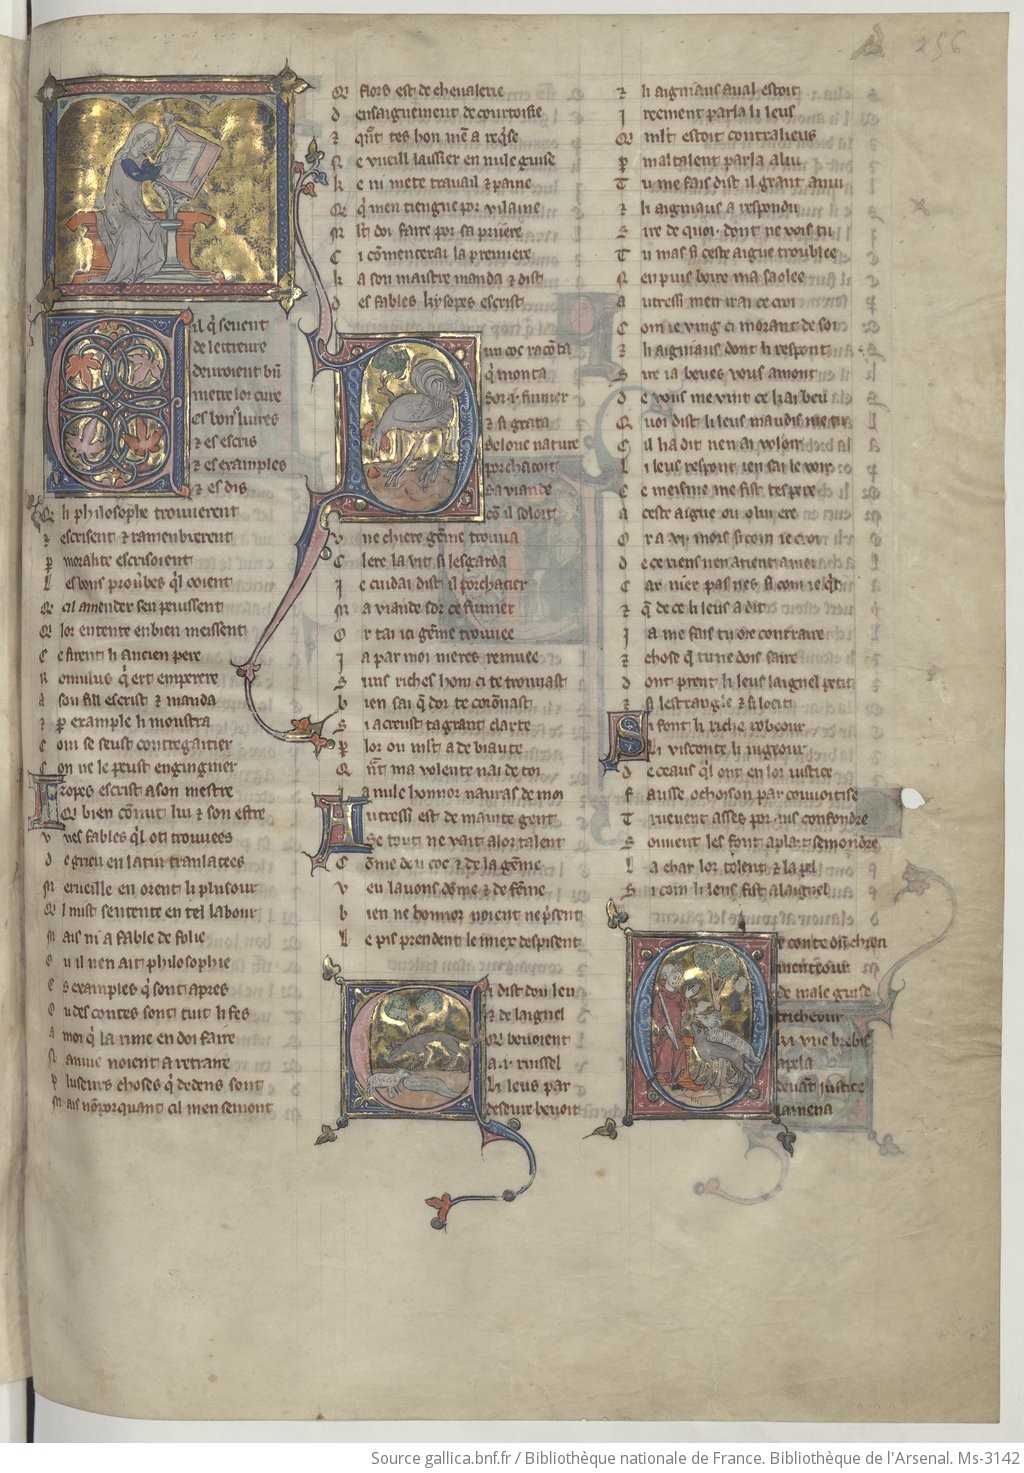 256
Cil q̃ sevent
de lettreure
devroient bñ
metre lor cure
es bons livres
⁊ es escris
⁊ es examples
⁊ es dis
Q li philosophe trouverent
⁊ escrisent ⁊ ramenbrerent
P moralite escrisoient
L es bons proṽbes q̃l ooient
Q cil amender sen peussent
Q lor entente en bien meissent
C e firent li ancien pere
R omulus q̃ ert emperere
A son fill escrist ⁊ manda
⁊ ꝑ example li monstra
C om se seust contregaitier
C on ne le peust engingnier
Esopes escrist a son mestre
Q bien cõnut lui ⁊ son estre
V nes fables q̃l ot trouvees
D e grieu en latin tranlatees
M erueille en orent li plusour
Q l mist sentente en tel labour
M ais ni a fable de folie
O u il nen ait philosophie
E s examples q̃ sont apres
O u des contes sont tuit li fes
A moi q̃ la rime en doi faire
N auine noient a retraire
P luseurs choses q̃ dedens sont
M ais nõporquant cil men semont
Q flors est de chevalerie
D ensaignement de courtoisie
⁊ q̃nt tes hon mẽ a req̃se
N e vueill laissier en nule guise
K e ni mete travail ⁊ paine
Q q̃ men tiengne por vilaine
M lt doi faire por sa priiere
C i cõmencerai la premiere
K a son maistre manda ⁊ dist
D es fables k̃ ysopes escrist
Dun coc racõta
q̃ monta
Sor .i. fumier
⁊ si grata
Selonc nature
porchacoit
Sa viande
cõ il soloit
V ne chiere gẽme trouva
C lere la vit si lesgarda
J e cuidai dist il porchacier
M a viande sor ce fumier
O r tai ici gẽme trouvee
J a par moi nieres remuee
S uns riches hom ci te trouvast
B ien sai q̃ dor te corõnast
S i acreust ta grant clarte
P lor ou mlt a de biaute
Q ñt ma volente nai de toi
J a nule honnor nauras de moi
Autressi est de mainte gent
Se tout ne vait a lor talent
C õme dou coc ⁊ de la gẽme
V eu lauons dõme ⁊ de fẽme
B ien ne honnor noient ne p̃sent
L e pis prendent le miex despisent
Ci dist dou leu
⁊ de laignel
Q bevoient
A .i. ruissel
Li leus par
deseure bevoit
⁊ li aigniaus aval estoit
J reement parla li leus
Q mlt estoit contralieus
P mal talent parla a lui
T u me fais dist il grant anui
⁊ li aigniaus a respondu
S ire de quoi . dont ne vois tu
T u mas si ceste aigue troublee
N en puis boire ma saolee
A utressi men irai ce croi
C om ie ving ci morant de soi
⁊ li aigniaus dont li respont
S ire ia beves vous amont
D e vous me vint ce kai beu
Q uoi dist li leus maudis me tu
C il li a dit nen ai voloir
L i leus respont ien sai le voir
C e meisme me fist tes pere
A ceste aigue ou o lui ere
O r a .vi. mois si com ie croi
D e ce riens nen atient a moi
C ar nier pas nes si com ie q̃t
⁊ q̃ de ce li leus a dit
J a me fais tu ore contraire
⁊ chose q̃ tu ne dois faire
D ont prent li leus laignel petit
⁊ si lestrangle ⁊ si locit
Si font li riche robeour
Li visconte li iugeour
D e ceaus q̃l ont en lor iustice
F ausse ochoison par couvoitise
T rueuent asses por aus confondre
S ouuent les font a plait semondre
L a char lor tolent ⁊ la pel
S i com li leus fist a laignel
Or conte dũ chien
menteour
De male guise
tricheour
Ki une brebis
apela
devãt justice
lamena
Source gallica.bnf.fr / Bibliothèque nationale de France. Bibliothèque de l'Arsenal. Ms-3142